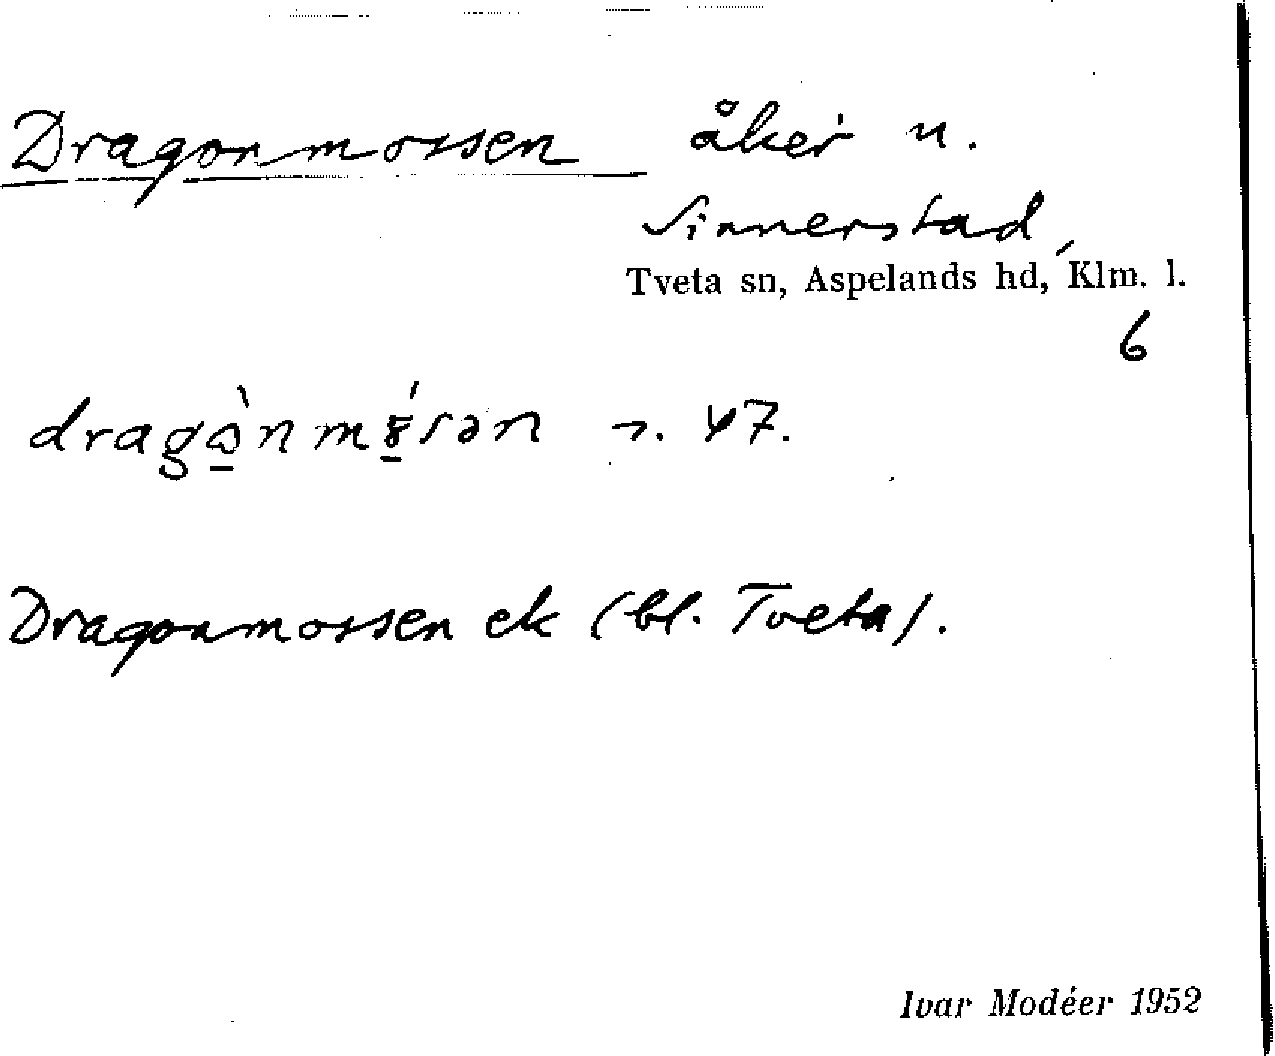 Dragonmossen åker u.
Sinnerstad,
Tveta sn, Aspelands hd, Klm. l.
6
47.
Dragonmossen ek (bl. Tveta).
Ivar Modéer 1952